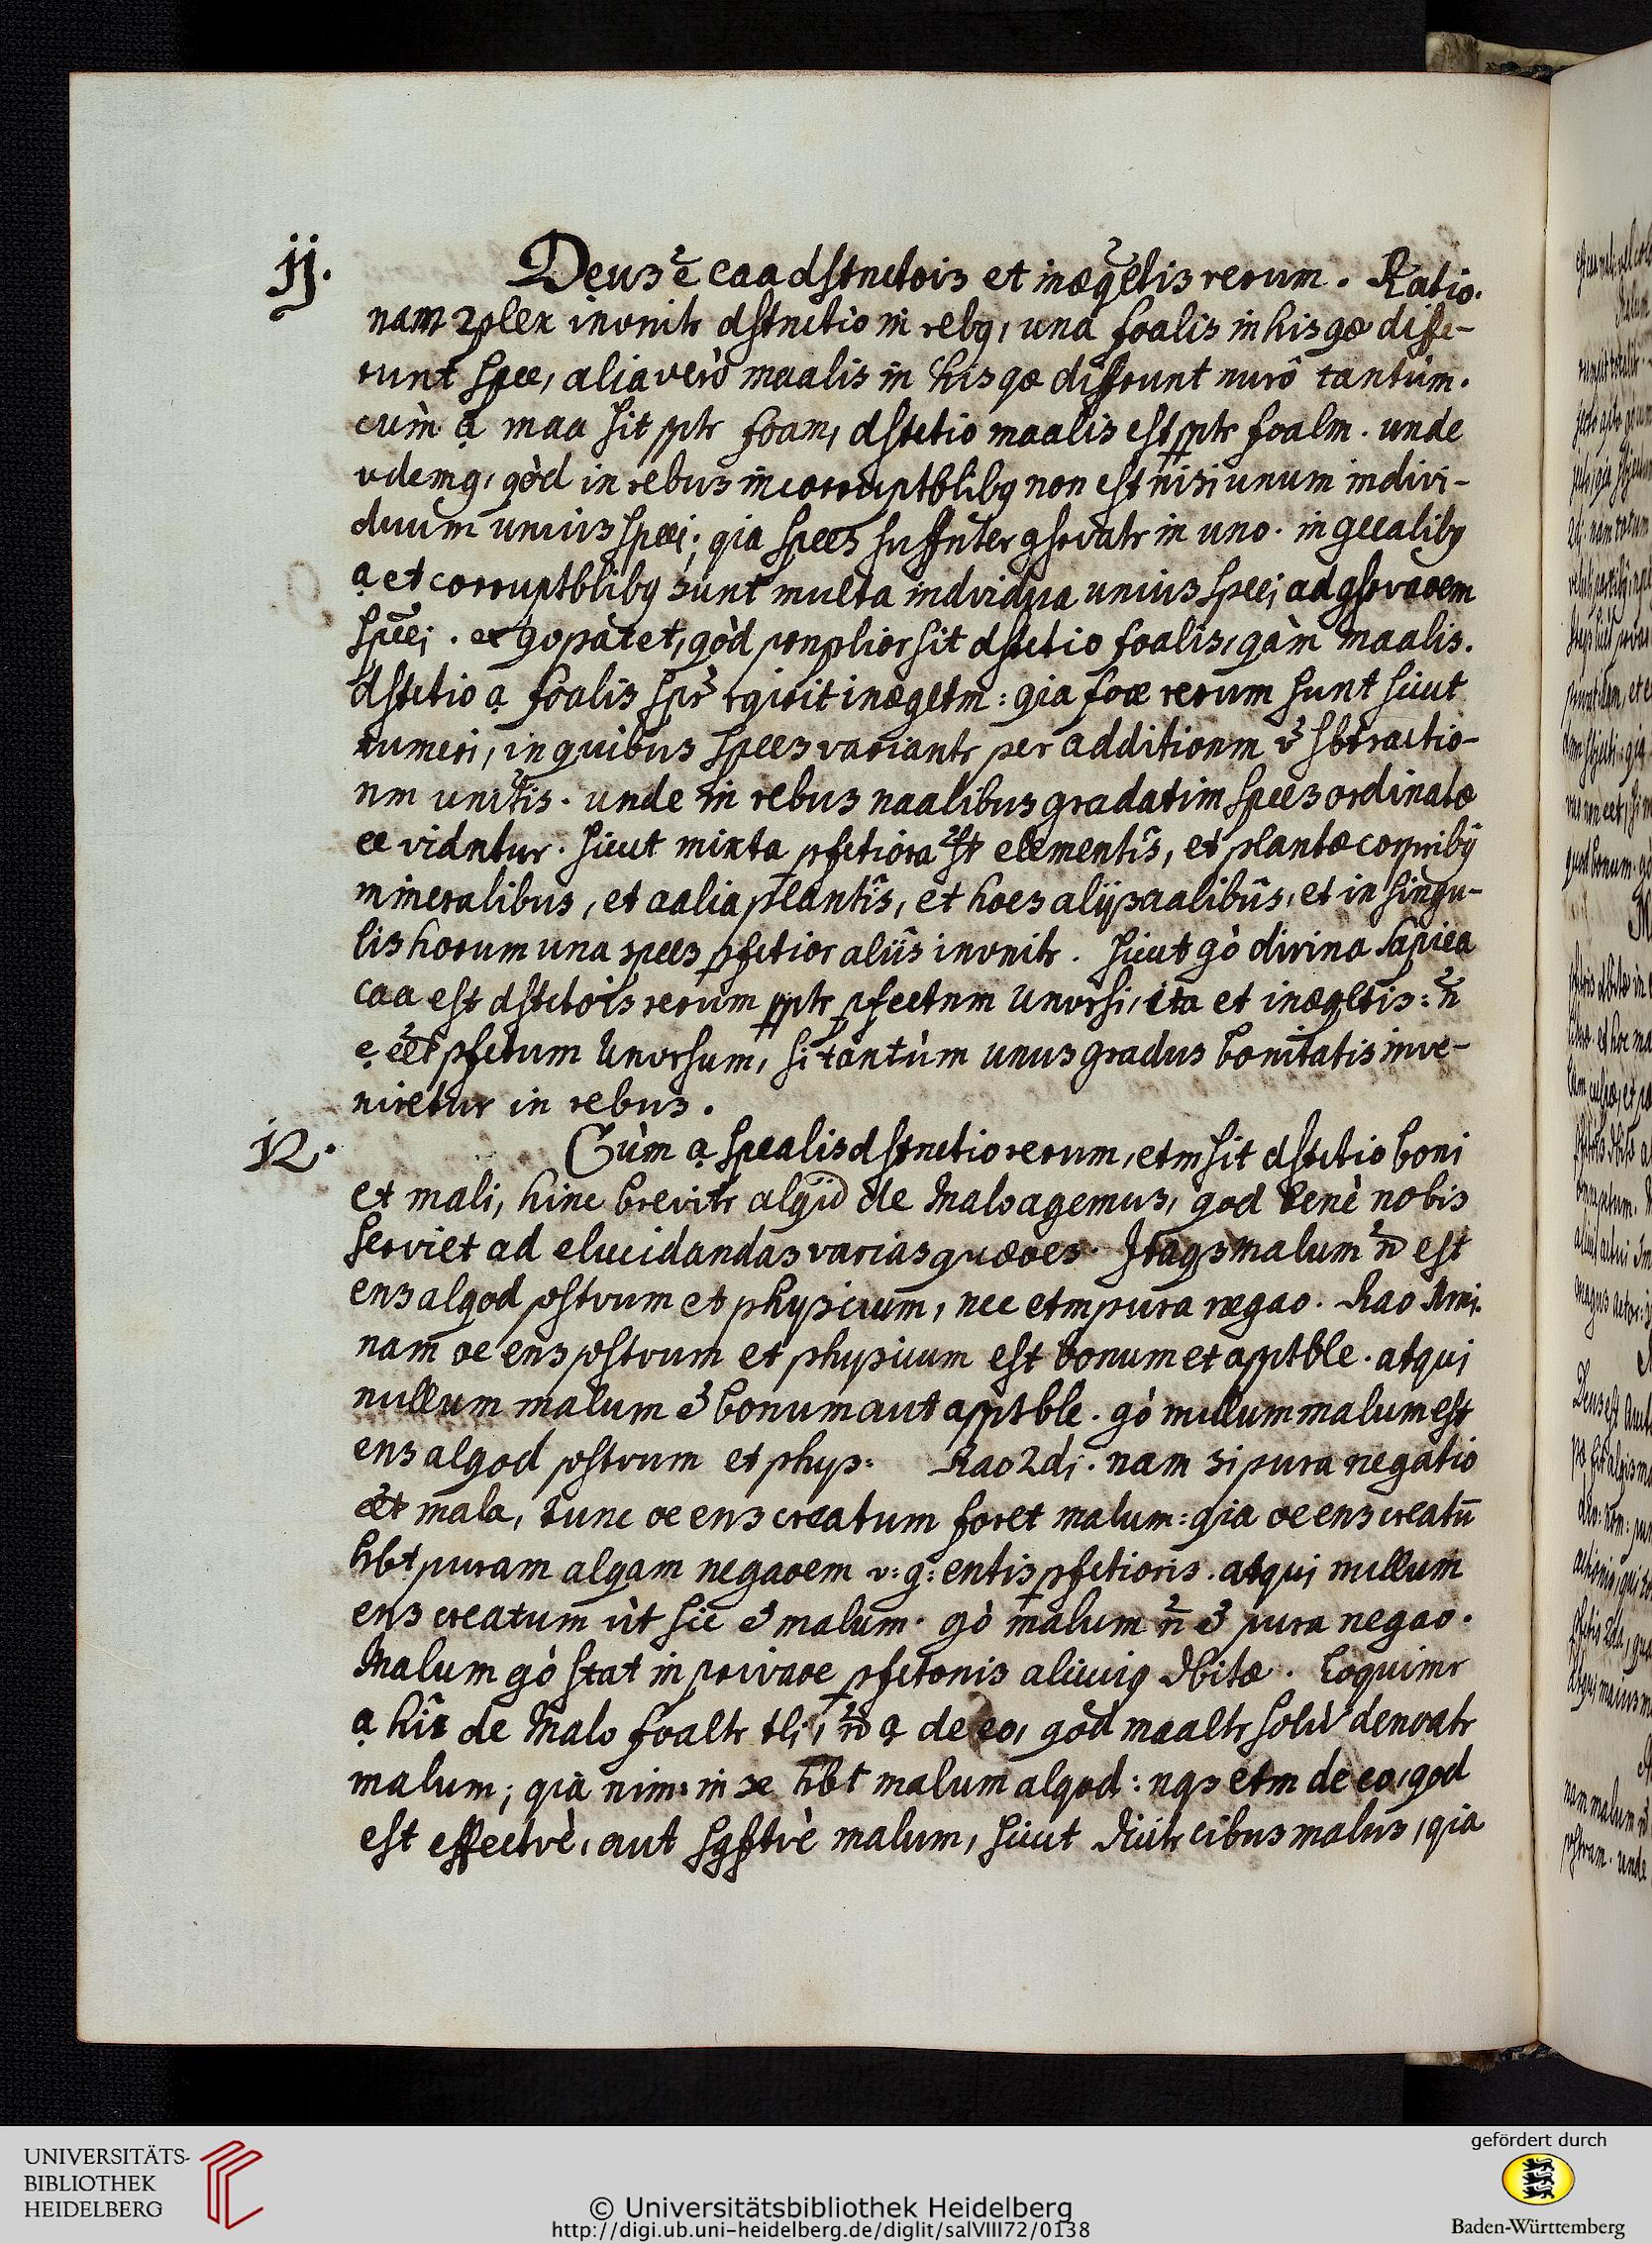 jj.
Deus ē caa dstnctois et inæqltis rerum. Ratio.
nam 2plex invnitr dstnctio in rebq, una foalis in his qæ diffe-
runt spee, alia verò maalis in his qæ diffrunt nurô tantùm.
cùm a maa sit pptr foam, dstctio maalis est pptr foalm. unde
vdemq, qòd in rebus incorruptblibq non est nisi unum indivi-
duum unius speei; qia spees suffnter gsrvatr in uno. in gecalibq
a et corruptblibq sunt multa indvidua unius speei ad gsrvaoem
speei. ex go patet, qòd prnplior sit dstctio foalis, qàm maalis.
dstctio a foalis spr rqirit inæqltm: qia foæ rerum sunt sicut
numeri, in quibus spees variantr per additionm v sbtractio-
nm unitis. unde in rebus naalibus gradatim spees ordinatæ
ee vidntur. sicut mixta pfctiora st elementis, et plantæ corpribq
mineralibus, et aalia plantis, et hoes alijs aalibus, et in singu-
lis horum una spees pfctior aliis invnitr. Sicut gò divina sapiea
caa est dstctois rerum pptr pfectnm Unvrsi, ita et inæqltis: n
e eet pfctum Unvrsum, si tantùm unus gradus bonitatis inve-
niretur in rebus.
12.
Cùm a spealis dstnctio rerum, etm sit dstctio boni
et mali, hinc brevitr alqid de Malo agemus, qod benè nobis
serviet ad elucidandas varias quæoes. Itaqs malum n est
ens alqod pstvum et physicum, nec etm pura negao. Rao Ami.
nam oe ens pstvum et physicum est bonum et apptble. atqui
nullum malum ē bonum aut apptble. gò nullum malum est
ens alqod pstvum et phys: Rao 2di. nam si pura negatio
eet mala, tunc oe ens creatum foret malum: qia oe ens creatū
hbt puram alqam negaoem v: g: entis pfctioris. atqui nullum
ens creatum ùt sic ē malum. gò malum n ē pura negao.
Malum gò stat in privaoe pfctonis alicuiq dbitæ. Loquimr
a hîc de Malo foaltr tli, n a de eo, qòd maaltr solù denoatr
malum; qia nim: in se hbt malum alqod: nqs etm de eo, qod
est effectvè, aut sgftvè malum, sicut dicitr cibus malus, qia
UNIVERSITÄTS-
BIBLIOTHEK
HEIDELBERG
© Universitätsbibliothek Heidelberg
http://digi.ub.uni-heidelberg.de/diglit/salVIII72/0138
gefördert durch
Baden-Württemberg